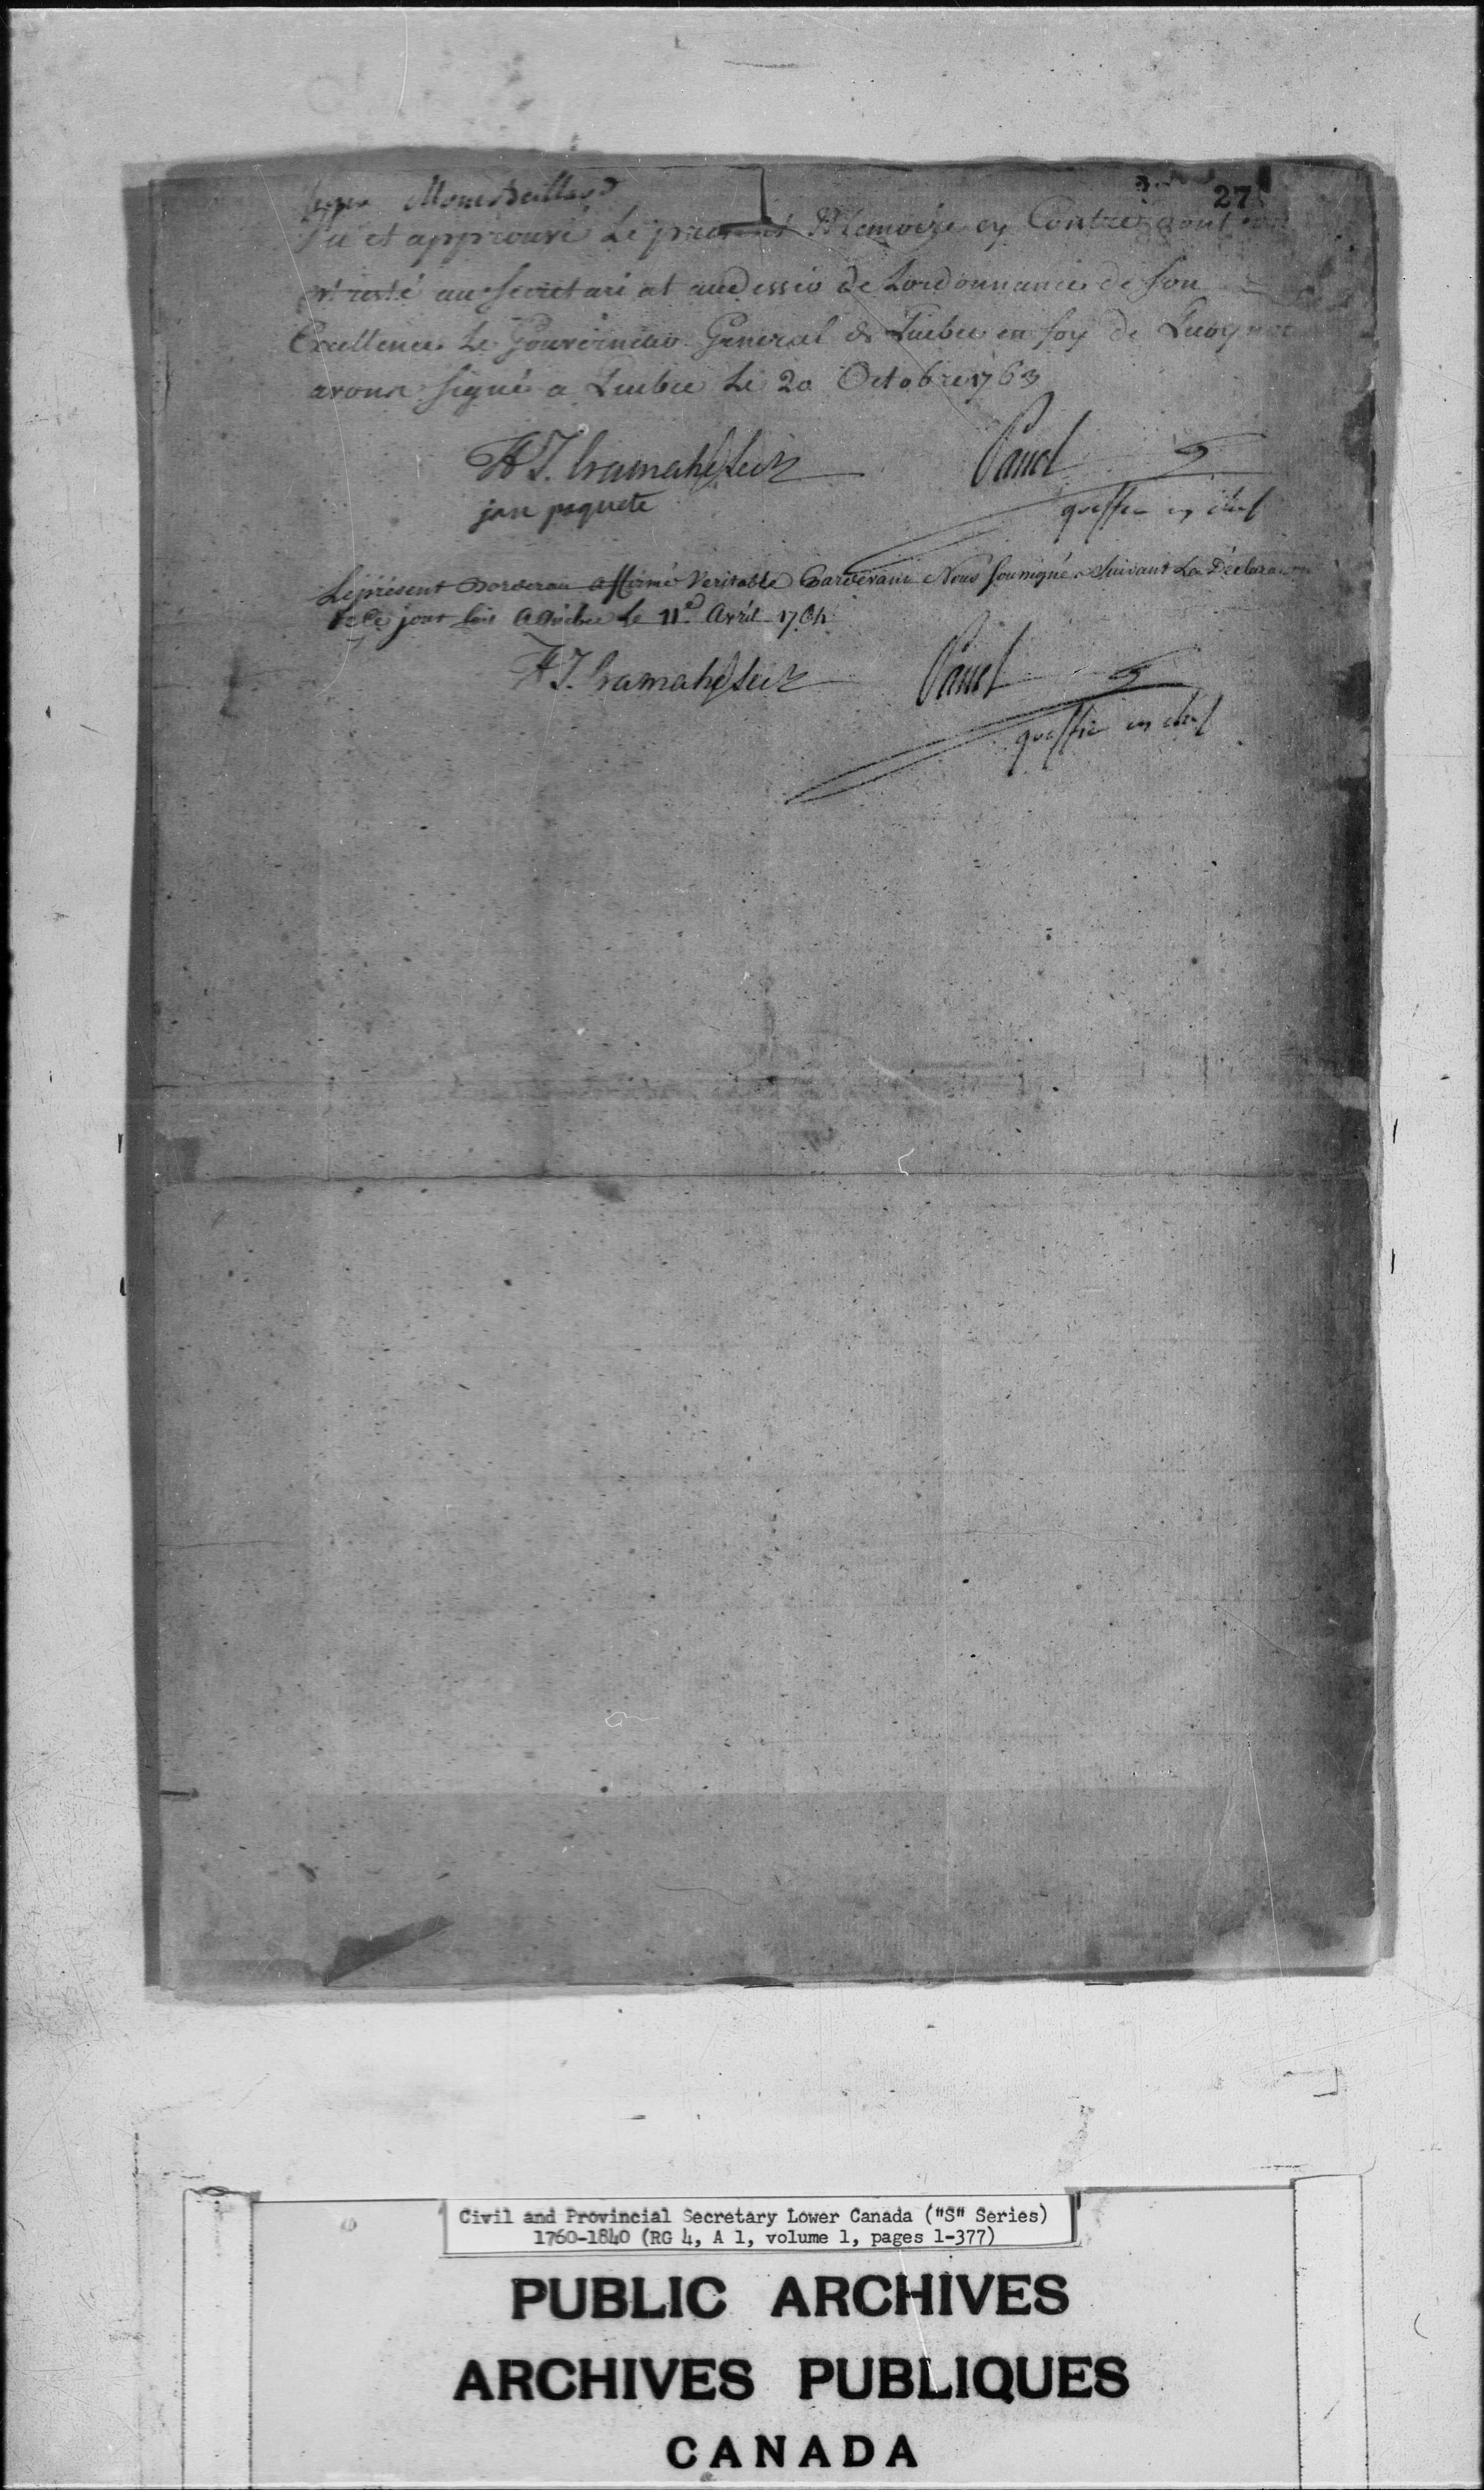 27
Vu et approuvé Le present Memoire en Contre
est resté au secretariat audessio de Lordonnance de Son
Excellence Le Gouverneur General de Quebec en foy de Quoy nous
avons signé a Quebec Le 20 Octobre 1763
H T. Cramahé Secr
Panet
jan paquete
greffier en chef
Le présent Bordereau affirmé Veritable Pardevant Nous Soussigné Suivant La Déclaration
de Ce jour a Québec le 11e. Avril 1764
H T. Cramahé Secr
Panet
greffier en chef
Civil and Provincial Secretary Lower Canada ("S" Series)
1760-1840 (RG 4, A 1, volume 1, pages 1-377)
PUBLIC ARCHIVES
ARCHIVES PUBLIQUES
CANADA